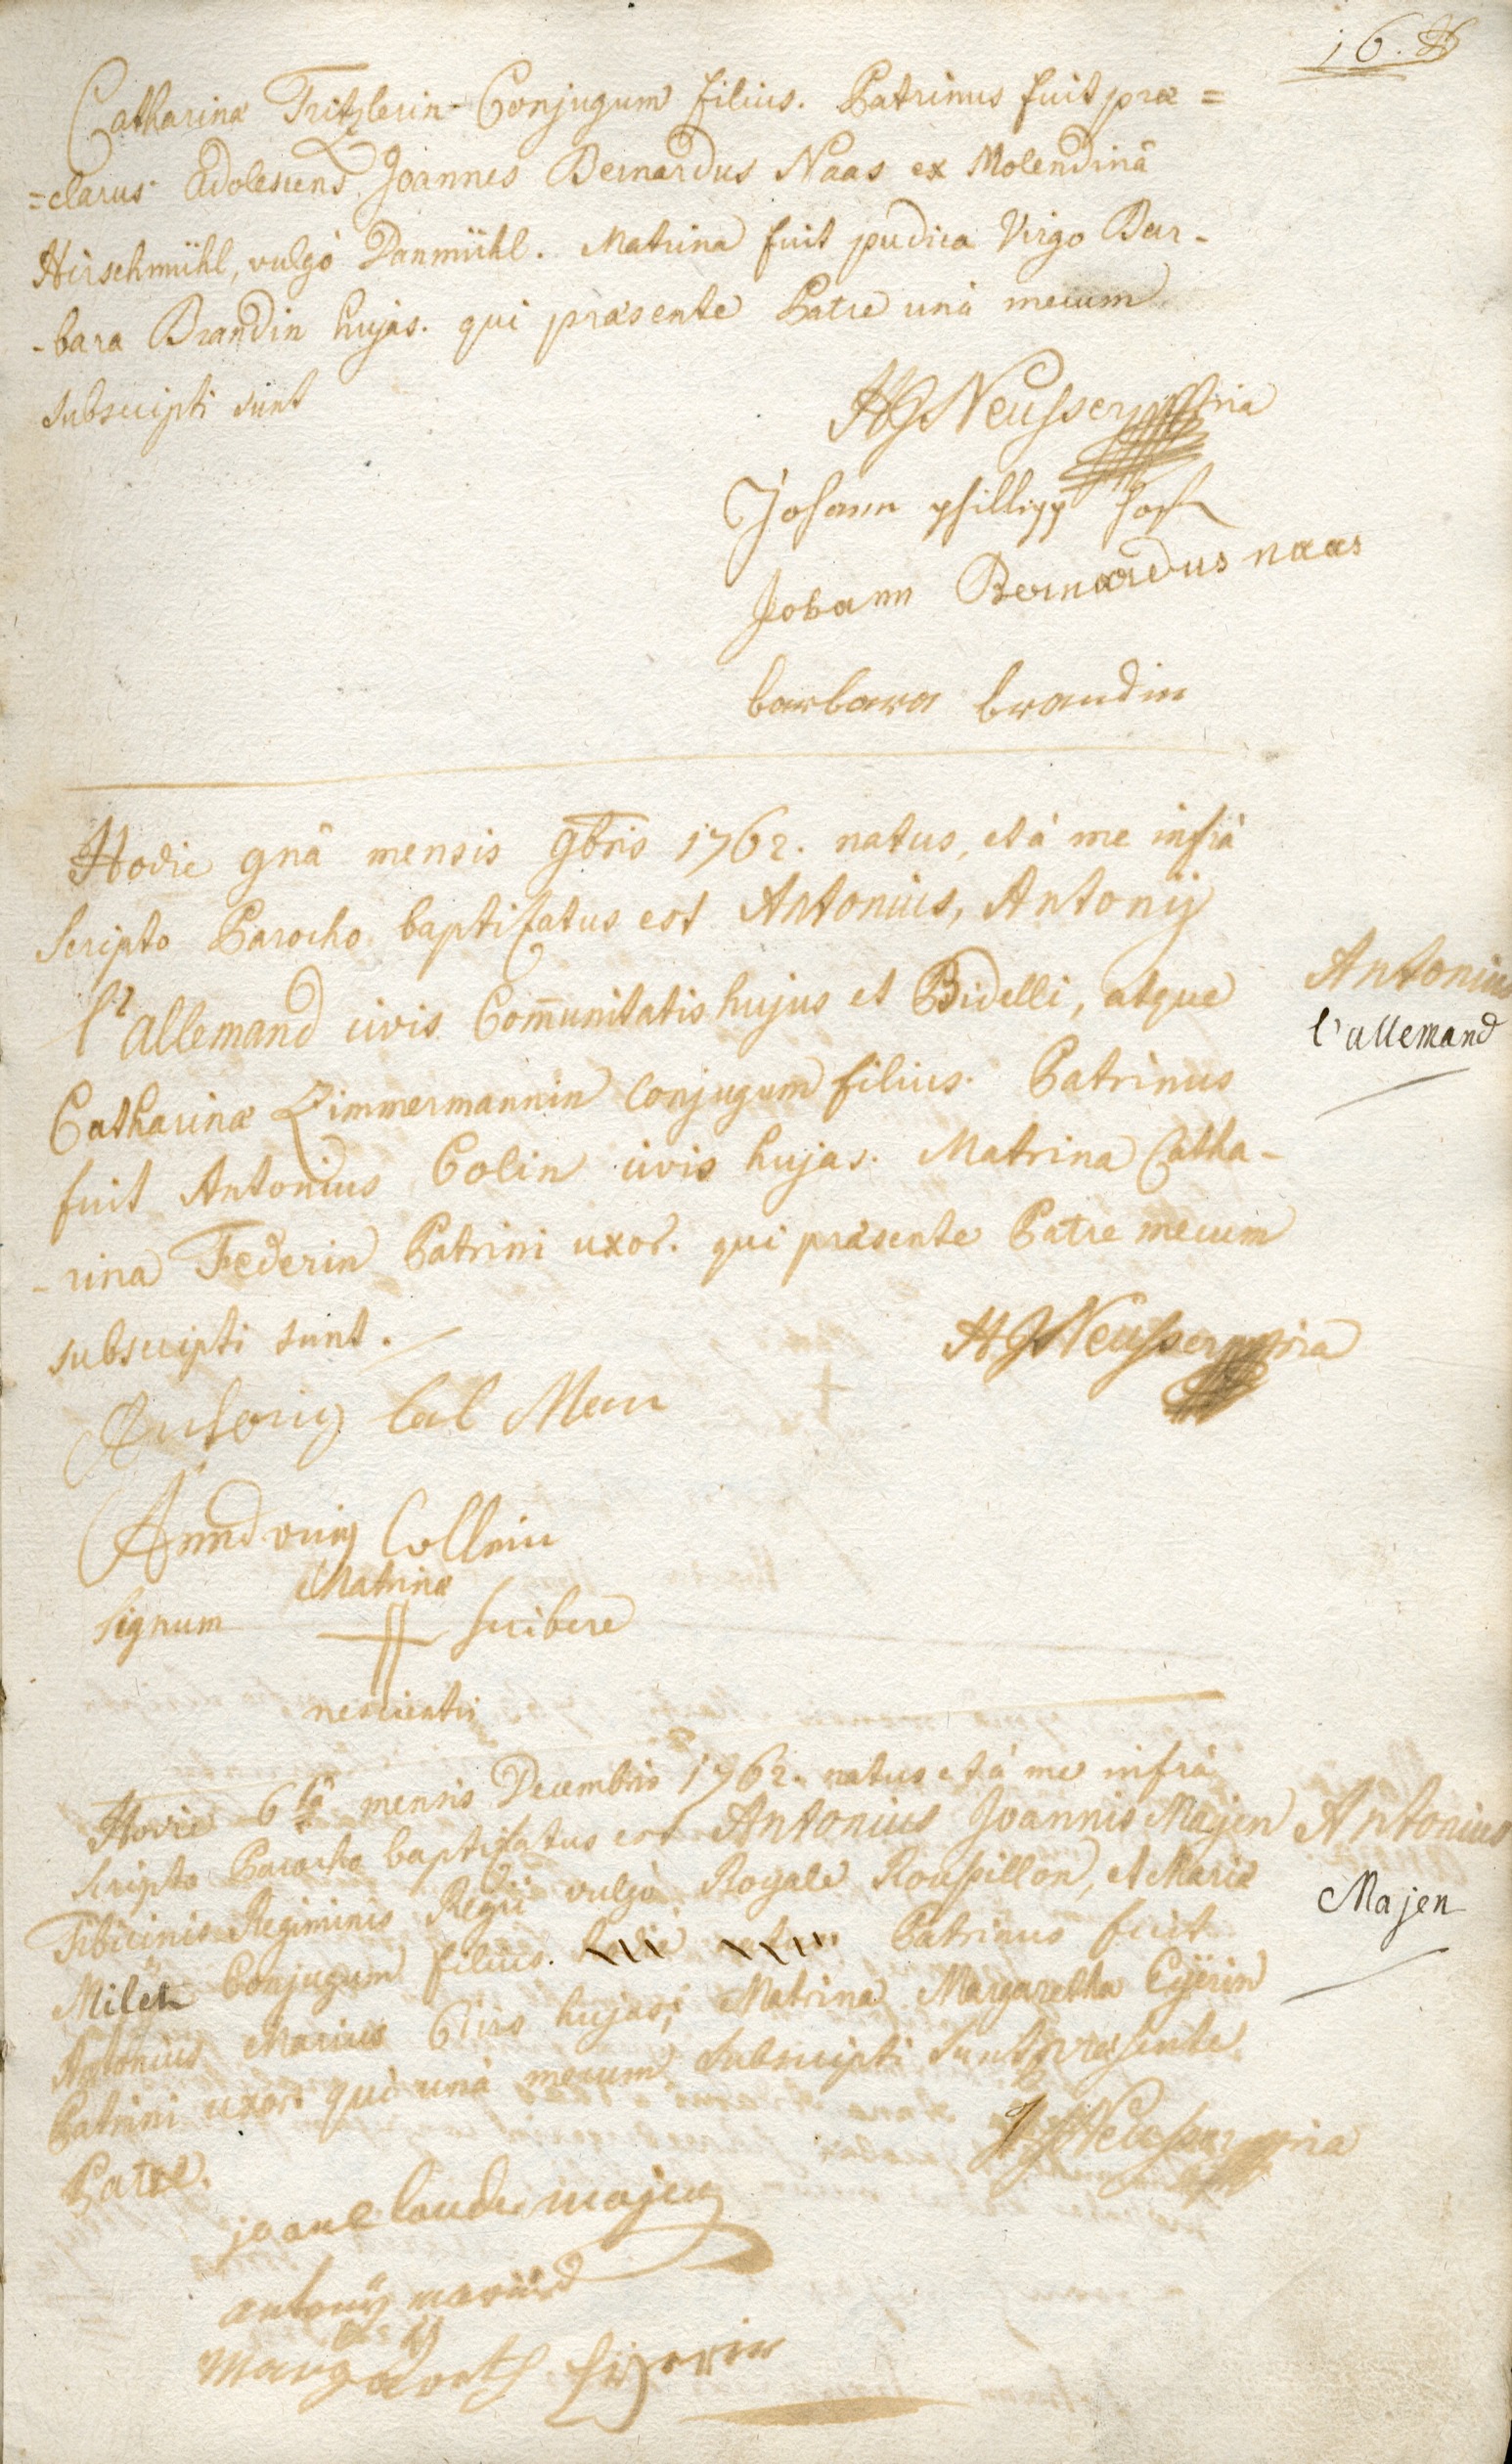 16.
Catharinæ Tritzlerin Conjugum filius. Patrinus fuit præ=
=clarus adolescens Joannes Bernardus Naas ex Molendinâ
Hirschmühl, vulgò Danmühl. Matrina fuit pudica Virgo Bar-
-bara Brandin hujas. qui præsente Patre unà mecum
subscripti sunt
HGNeusser mpria
Johann phillipp
Johann Bernardus naas
barbara brandin
Hodie 9nâ mensis 9bris 1762. natus, et à me infrà
scripto Parocho baptisatus est Antonius, Antonij
l'allemand civis Com̄unitatis hujus et Bidelli, atque
Catharinæ Zimmermannin conjugum filius. Patrinus
fuit Antonius Colin civis hujas. Matrina Catha-
-rina Federin Patrini uxor. qui præsente Patre mecum
subscripti sunt.
HGNeusser mpria
Antonius
l'allemand
Antonig lal Man
Anndonig Collein
Matrinæ
Signum scribere
nescientis
Hodie 6tâ mensis Decembris 1762. natus et à me infrà
scripto Parocho baptisatus est Antonius Joannis Majen
Tibicinis Regiminis Regii vulgò Royale Roussillon, et Mariæ
Milet Conjugum filius. Patrinus fuit
Antonius Marius Civis hujas, Matrina Margaretha Eyerin
Patrini uxor. qui unà mecum subscripti sunt præsente
Patre.
HGNeusser mpria
Antonius
Majen
jean claude majen
antonij mariud
Margareth Eyerin